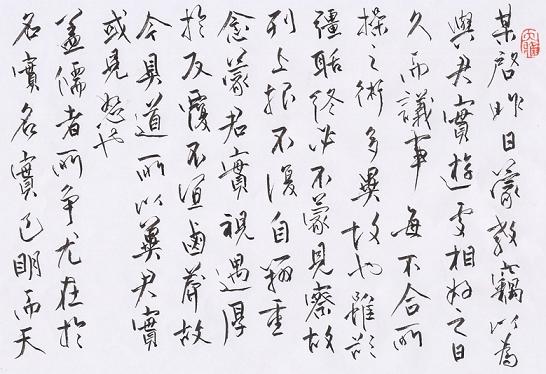 某啓昨日蒙教竊以為
與君實遊處相好之日
久而議事每不合所
操之術多異故也雖欲
彊聒終必不蒙見察故
上报不復自重
念蒙君實視遇厚
於反覆不宜鹵莽故
今具道所以冀君實
或見恕也
蓋儒者所爭尤在於
名實名實已明而天